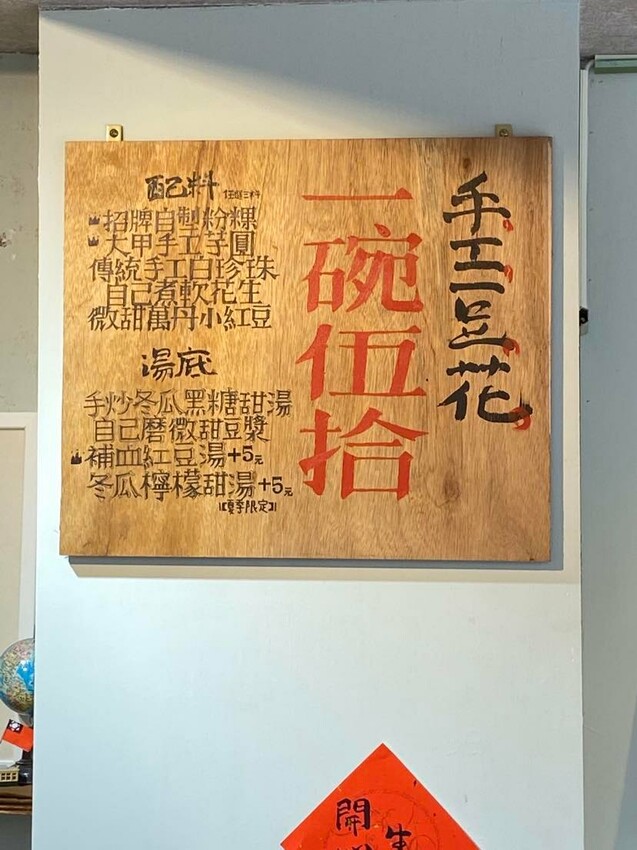 手工豆花
一碗伍拾
配料 任選三料
招牌自制粉粿
大甲手工芋圓
傳統手工白珍珠
自己煮軟花生
微甜萬丹小紅豆
湯底
手炒冬瓜黑糖甜湯
自己磨微甜豆漿
補血紅豆湯+5元
冬瓜檸檬甜湯+5元
【夏季限定】
開
生